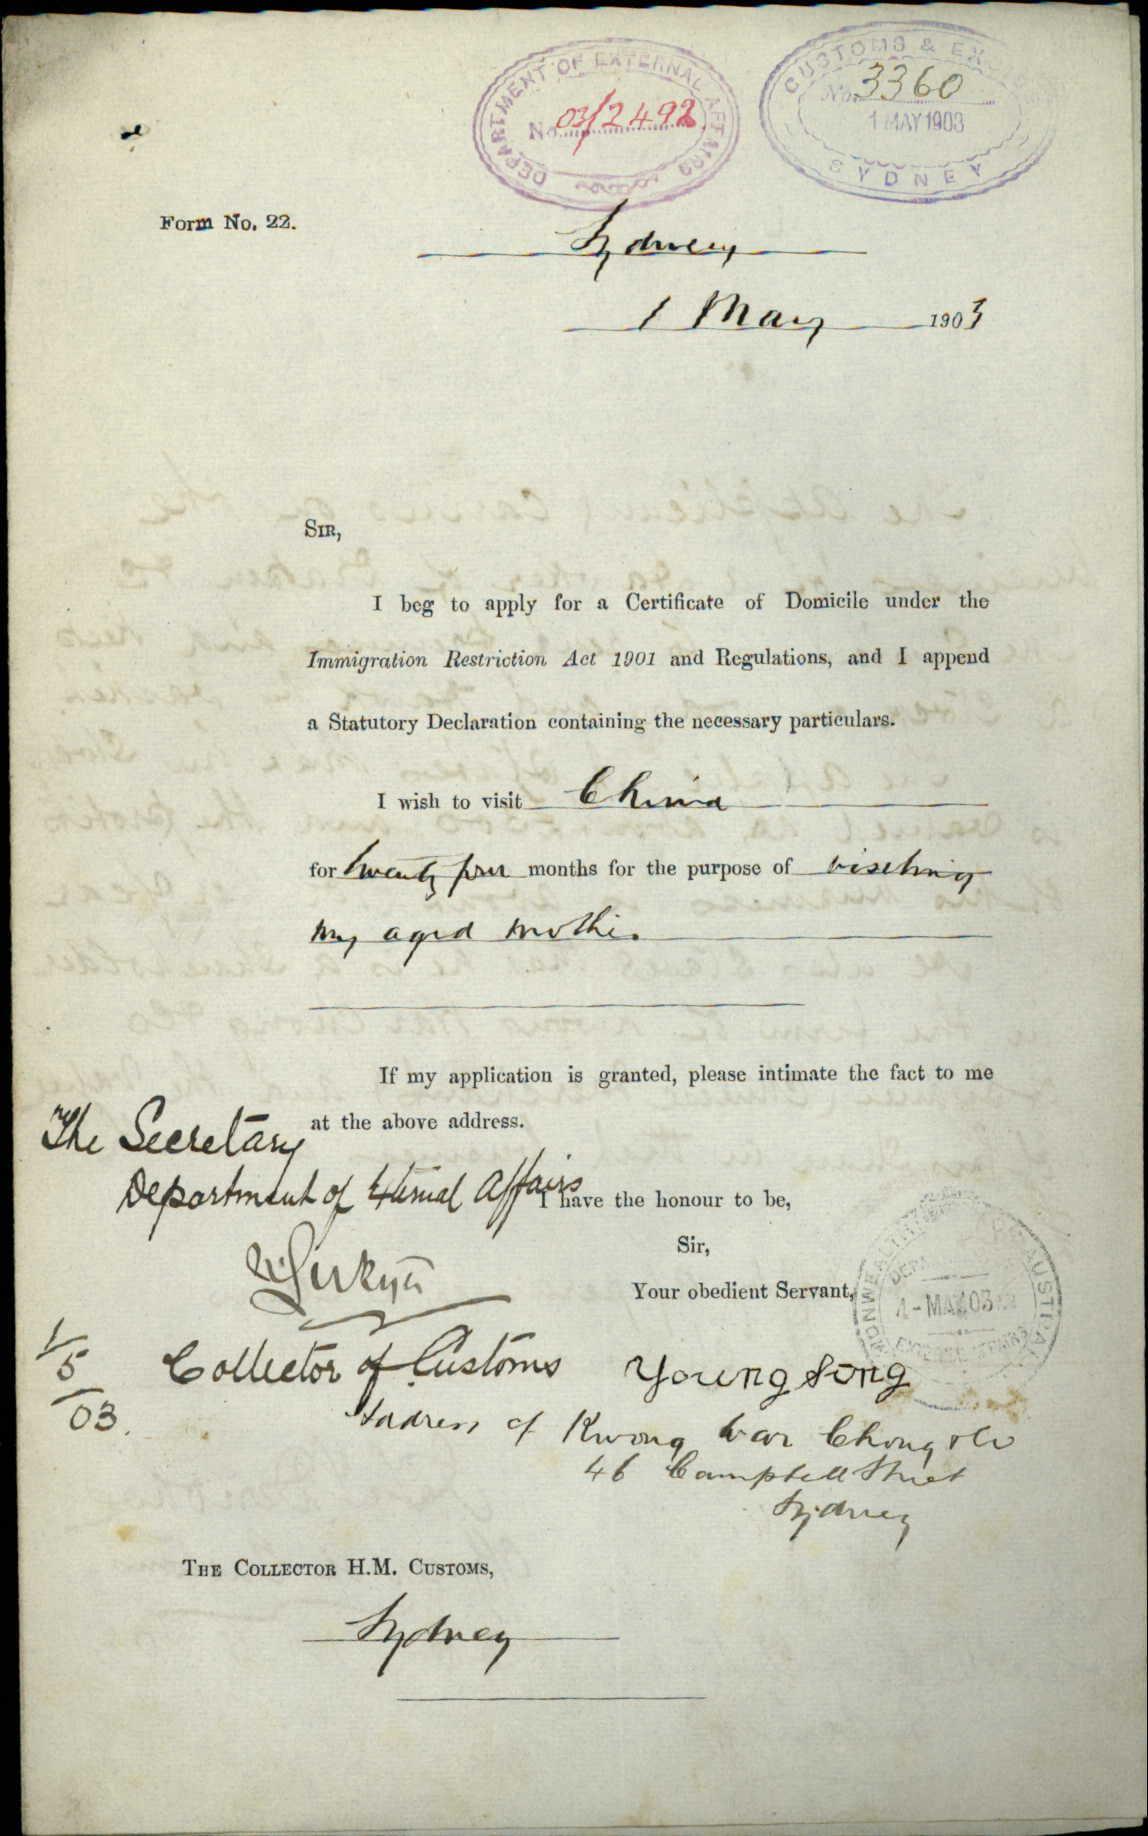 DEPARTMENT OF EXTERNAL AFFAIRS
No. 03/2492
CUSTOMS & EX
No. 3360
1 MAY 1903
SYDNEY
Form No. 22.
Sydney
1 May 1903
SIR,
I beg to apply for a Certificate of Domicile under the
Immigration Restriction Act 1901 and Regulations, and I append
a Statutory Declaration containing the necessary particulars.
I wish to visit China
for twenty four months for the purpose of visiting
my aged mother
If my application is granted, please intimate the fact to me
at the above address.
The Secretary
Department of External Affairs
I have the honour to be,
Sir,
Your obedient Servant,
4-MAY 03
1/5/03.
Collector of Customs
Young Song
Address c/ Kwong War Chong & Co
46 Campbell Street
Sydney
THE COLLECTOR H.M. CUSTOMS,
Sydney